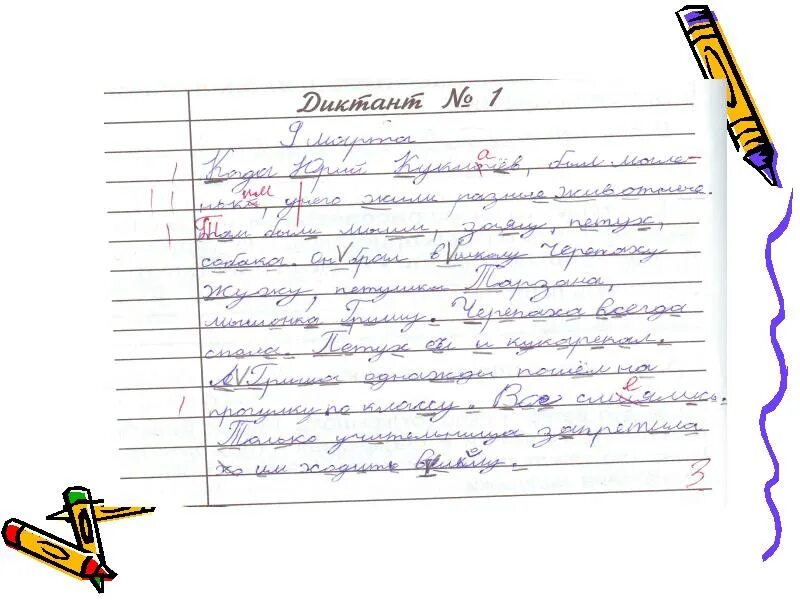 Диктант № 1
9 марта
Когда Юрий Куклаёв, был мале-
ньким, у него жили разные животные.
Там были мыши, заяц, петух,
собака. Он V брал в V школу Черепаху
Жужу, петушка Тарзана,
мышонка Гришу. Черепаха всегда
спала. Петух и кукарекал.
А V Гриша однажды пошёл на
прогулку по классу. Все смеялись.
Только учительница запретила
им ходить в V школу.
3